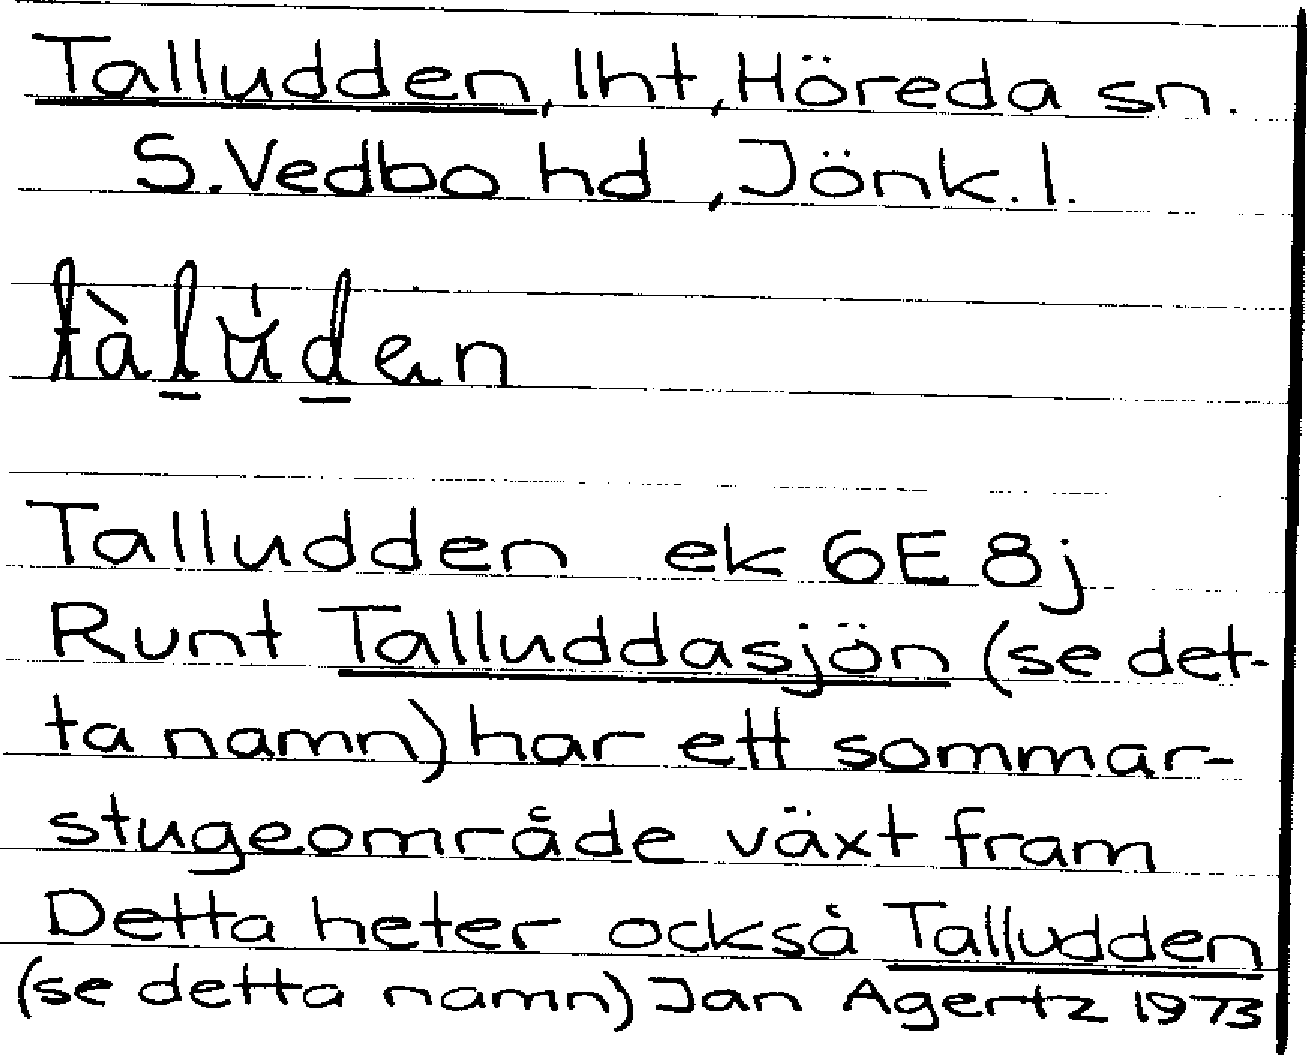 Talludden, lht, Höreda sn.
S. Vedbo hd, Jönk. l.
tàl̲u̇d̲en
Talludden ek 6E 8j
Runt Talluddasjön (se det-
ta namn) har ett sommar-
stugeområde växt fram
Detta heter också Talludden
(se detta namn) Jan Agertz 1973